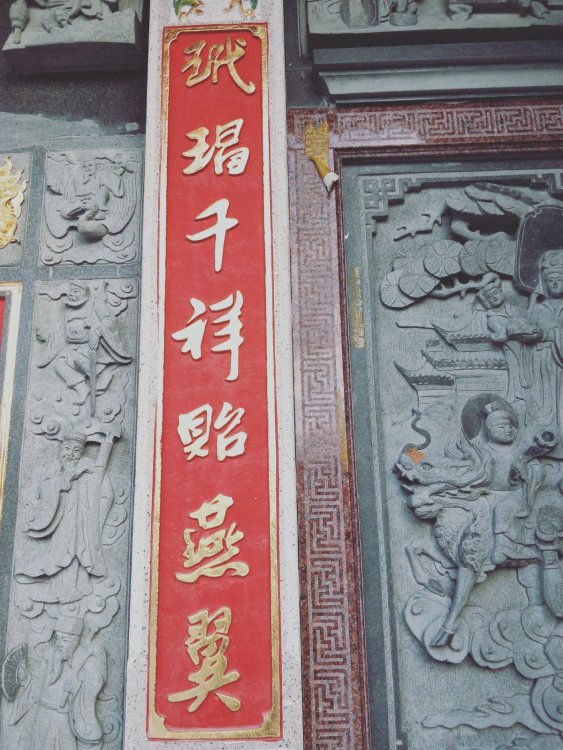 玳瑁千祥貽燕翼